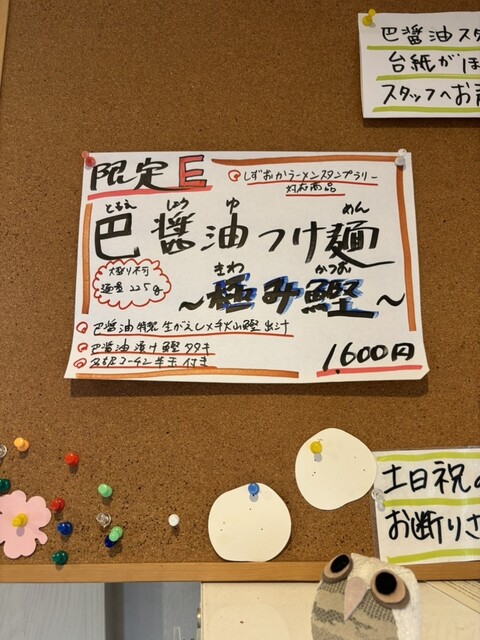 巴醤油スタ
台紙がほ
スタッフへお声
限定E
しずおかラーメンスタンプラリー
対応商品
ともえ しょう ゆ めん
巴醤油つけ麺
大盛り不可
麺量225g
きわ かつお
～極み鰹～
巴醤油特製生がえし×手火山鰹出汁
巴醤油漬け鰹タタキ
名古屋コーチン半玉付き
1,600円
土日祝の
お断りさ